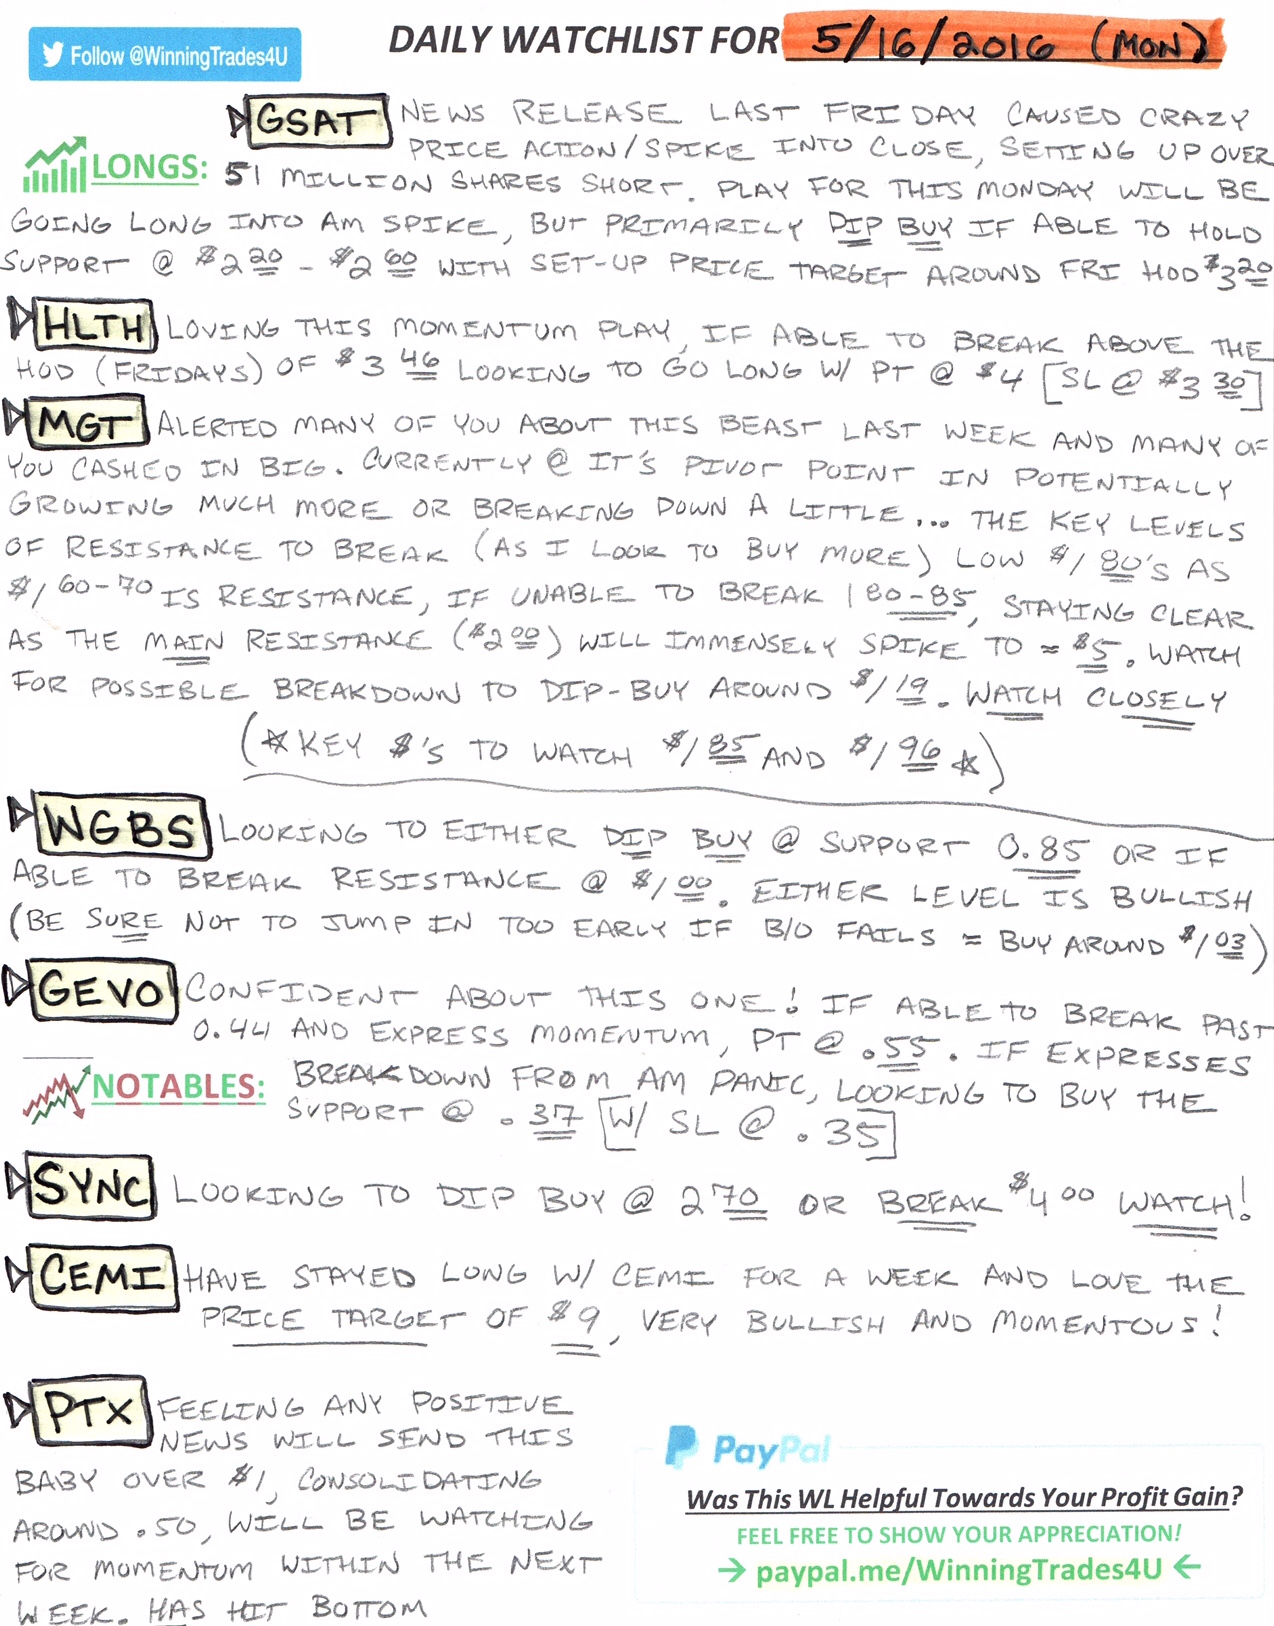 Follow @WinningTrades4U
DAILY WATCHLIST FOR 5/16/2016 (MON)
GSAT NEWS RELEASE LAST FRIDAY CAUSED CRAZY
PRICE ACTION/SPIKE INTO CLOSE, SETTING UP OVER
LONGS: 51 MILLION SHARES SHORT. PLAY FOR THIS MONDAY WILL BE
GOING LONG INTO AM SPIKE, BUT PRIMARILY DIP BUY IF ABLE TO HOLD
SUPPORT @ $2 20 - $2 60 WITH SET-UP PRICE TARGET AROUND FRI HOD $3 20
HLTH LOVING THIS MOMENTUM PLAY, IF ABLE TO BREAK ABOVE THE
HOD (FRIDAYS) OF $3 46 LOOKING TO GO LONG W/ PT @ $4 [SL @ $3 30]
MGT ALERTED MANY OF YOU ABOUT THIS BEAST LAST WEEK AND MANY OF
YOU CASHED IN BIG. CURRENTLY @ IT'S PIVOT POINT IN POTENTIALLY
GROWING MUCH MORE OR BREAKING DOWN A LITTLE... THE KEY LEVELS
OF RESISTANCE TO BREAK (AS I LOOK TO BUY MORE) LOW $1 80'S AS
$1 60-70 IS RESISTANCE, IF UNABLE TO BREAK 1 80-85, STAYING CLEAR
AS THE MAIN RESISTANCE ($2 00) WILL IMMENSELY SPIKE TO ≈ $5. WATCH
FOR POSSIBLE BREAKDOWN TO DIP-BUY AROUND $1 19. WATCH CLOSELY
(★KEY $'S TO WATCH $1 85 AND $1 96 ★)
WGBS LOOKING TO EITHER DIP BUY @ SUPPORT 0.85 OR IF
ABLE TO BREAK RESISTANCE @ $1 00. EITHER LEVEL IS BULLISH
(BE SURE NOT TO JUMP IN TOO EARLY IF B/O FAILS = BUY AROUND $1 03)
GEVO CONFIDENT ABOUT THIS ONE! IF ABLE TO BREAK PAST
0.44 AND EXPRESS MOMENTUM, PT @ .55. IF EXPRESSES
NOTABLES: BREAKDOWN FROM AM PANIC, LOOKING TO BUY THE
SUPPORT @ .37 [W/ SL @ .35]
SYNC LOOKING TO DIP BUY @ 2 70 OR BREAK $4 00 WATCH!
CEMI HAVE STAYED LONG W/ CEMI FOR A WEEK AND LOVE THE
PRICE TARGET OF $9, VERY BULLISH AND MOMENTOUS!
PTX FEELING ANY POSITIVE
NEWS WILL SEND THIS
BABY OVER $1, CONSOLIDATING
AROUND .50, WILL BE WATCHING
FOR MOMENTUM WITHIN THE NEXT
WEEK. HAS HIT BOTTOM
PayPal
Was This WL Helpful Towards Your Profit Gain?
FEEL FREE TO SHOW YOUR APPRECIATION!
→ paypal.me/WinningTrades4U ←